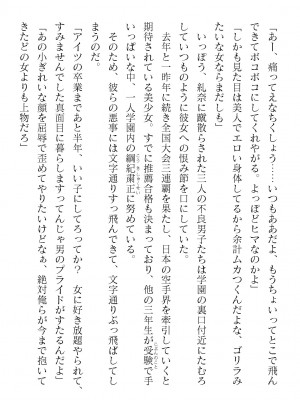 「あー、痛ってえなちくしょう……いつもああだよ、もうちょいってとこで飛ん
できてボコボコにしてくれやがる。よっぽどヒマなのかよ」
「しかも見た目は美人でエロい身体してるから余計ムカつくんだよな、ゴリラみ
たいな女ならまだしも」
いっぽう、礼奈に蹴散らされた三人の不良男子たちは学園の裏口付近にたむろ
し、いつものように彼女への恨み節を口にしていた。
去年と一昨年に続き全国大会三連覇を果たし、日本の空手界を牽引していくと
期待されている美少女。すでに推薦合格も決まっており、他の三年生が受験で手
いっぱいな中、一人学園内の綱紀粛正に努めている。
そのため、彼らの悪事には文字通りすっ飛んできて、文字通りぶっ飛ばしてし
まうのだ。
「アイツの卒業まであと半年、いい子にしてろってか？　女に好き放題やられて、
すみませんでした真面目に暮らしますってんじゃ男のプライドがすたるんだよ」
「あの小ぎれいな顔を屈辱で歪めてやりたいけどなぁ、絶対俺らが今まで抱いて
きたどの女よりも上物だろ」